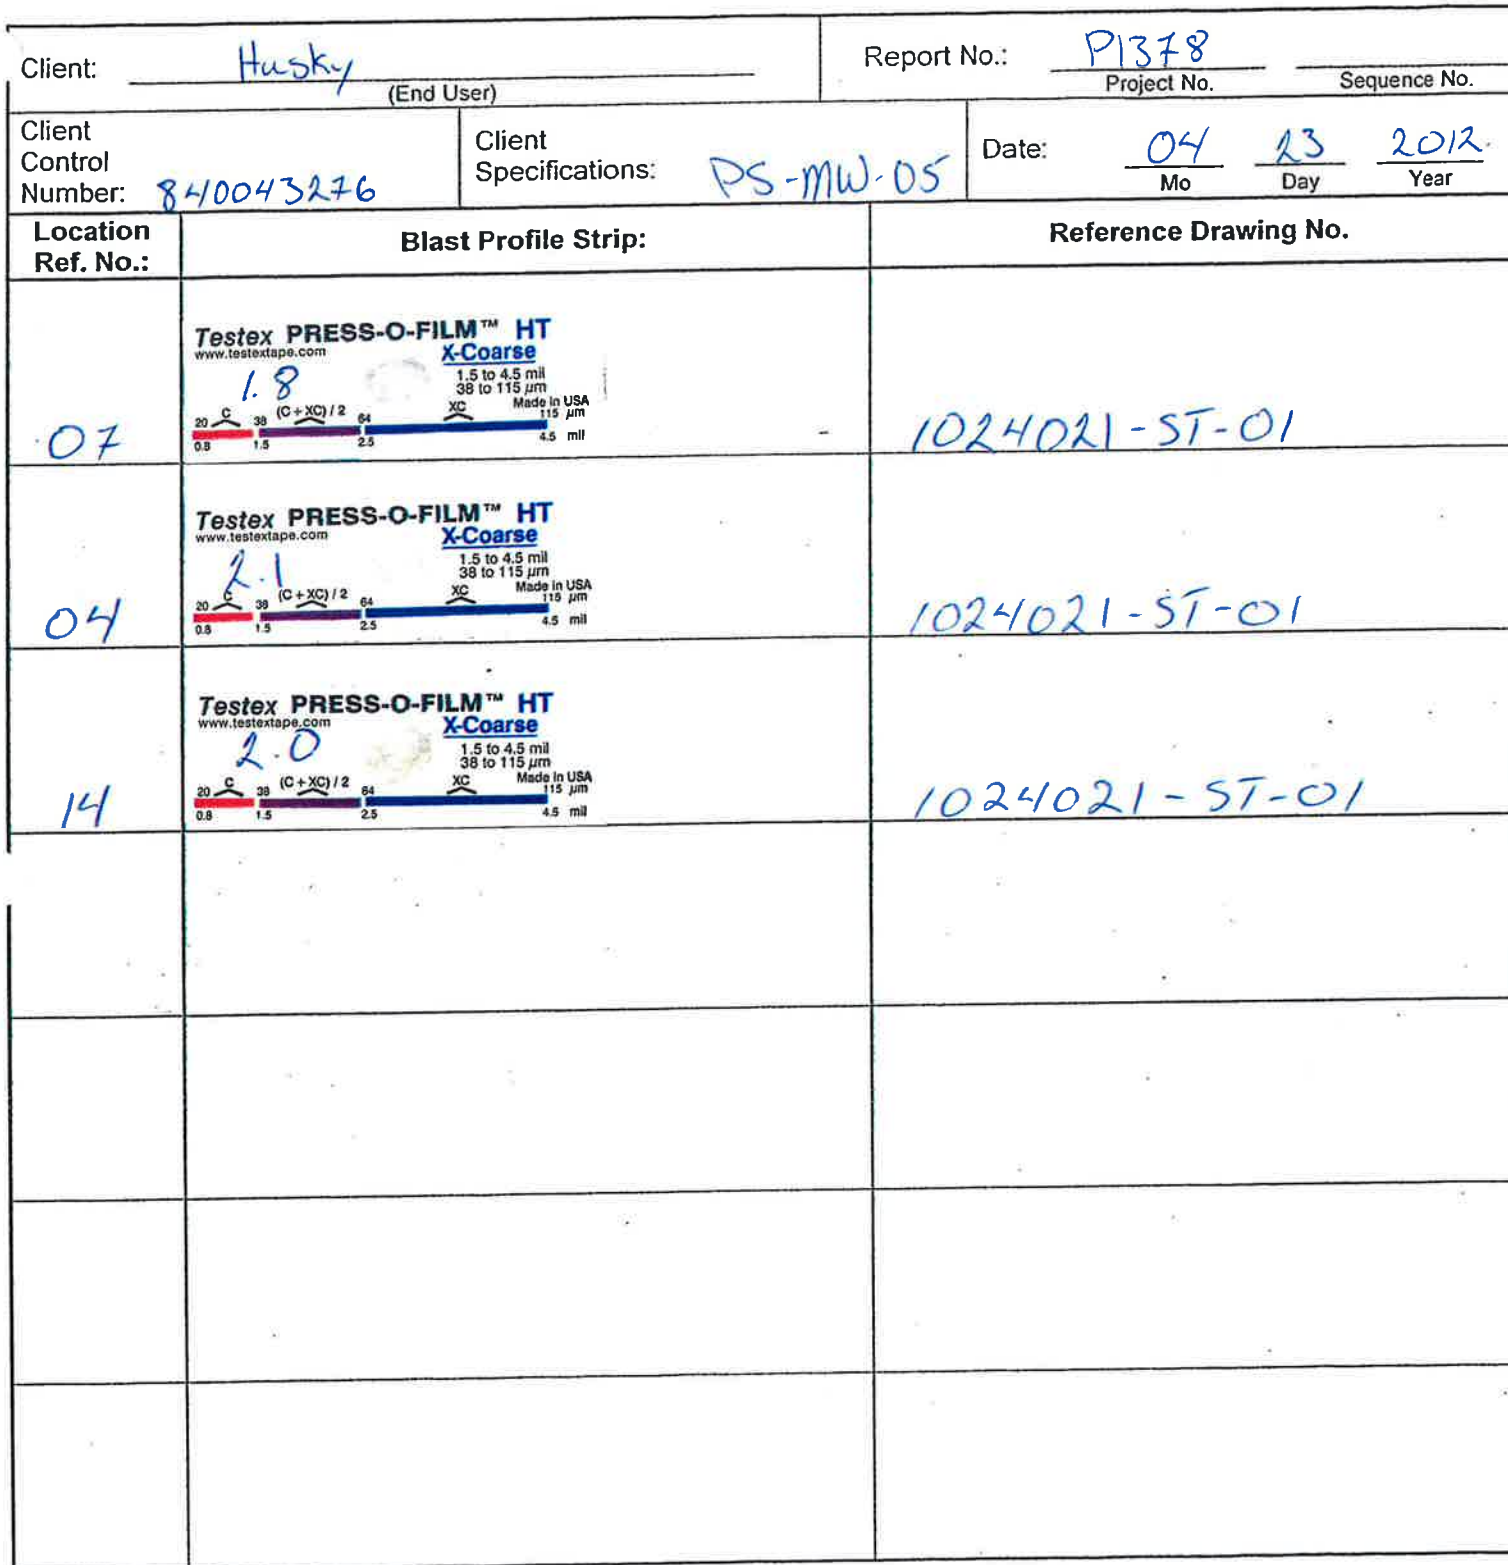 Client: Husky
(End User)
Report No.: P1378
Project No. Sequence No.
Client
Control
Number: 840043276
Client
Specifications: PS-MW-05
Date: 04 23 2012.
Mo Day Year
Location
Ref. No.:
Blast Profile Strip:
Reference Drawing No.
Testex PRESS-O-FILM™ HT
www.testextape.com X-Coarse
1.5 to 4.5 mil
38 to 115 µm
1.8
Made in USA
20 C 38 (C + XC) / 2 64 XC 115 µm
0.8 1.5 2.5 4.5 mil
07
1024021-ST-01
Testex PRESS-O-FILM™ HT
www.testextape.com X-Coarse
1.5 to 4.5 mil
38 to 115 µm
2.1
Made in USA
20 C 38 (C + XC) / 2 64 XC 115 µm
0.8 1.5 2.5 4.5 mil
04
1024021-ST-01
Testex PRESS-O-FILM™ HT
www.testextape.com X-Coarse
1.5 to 4.5 mil
38 to 115 µm
2.0
Made in USA
20 C 38 (C + XC) / 2 64 XC 115 µm
0.8 1.5 2.5 4.5 mil
14
1024021-ST-01